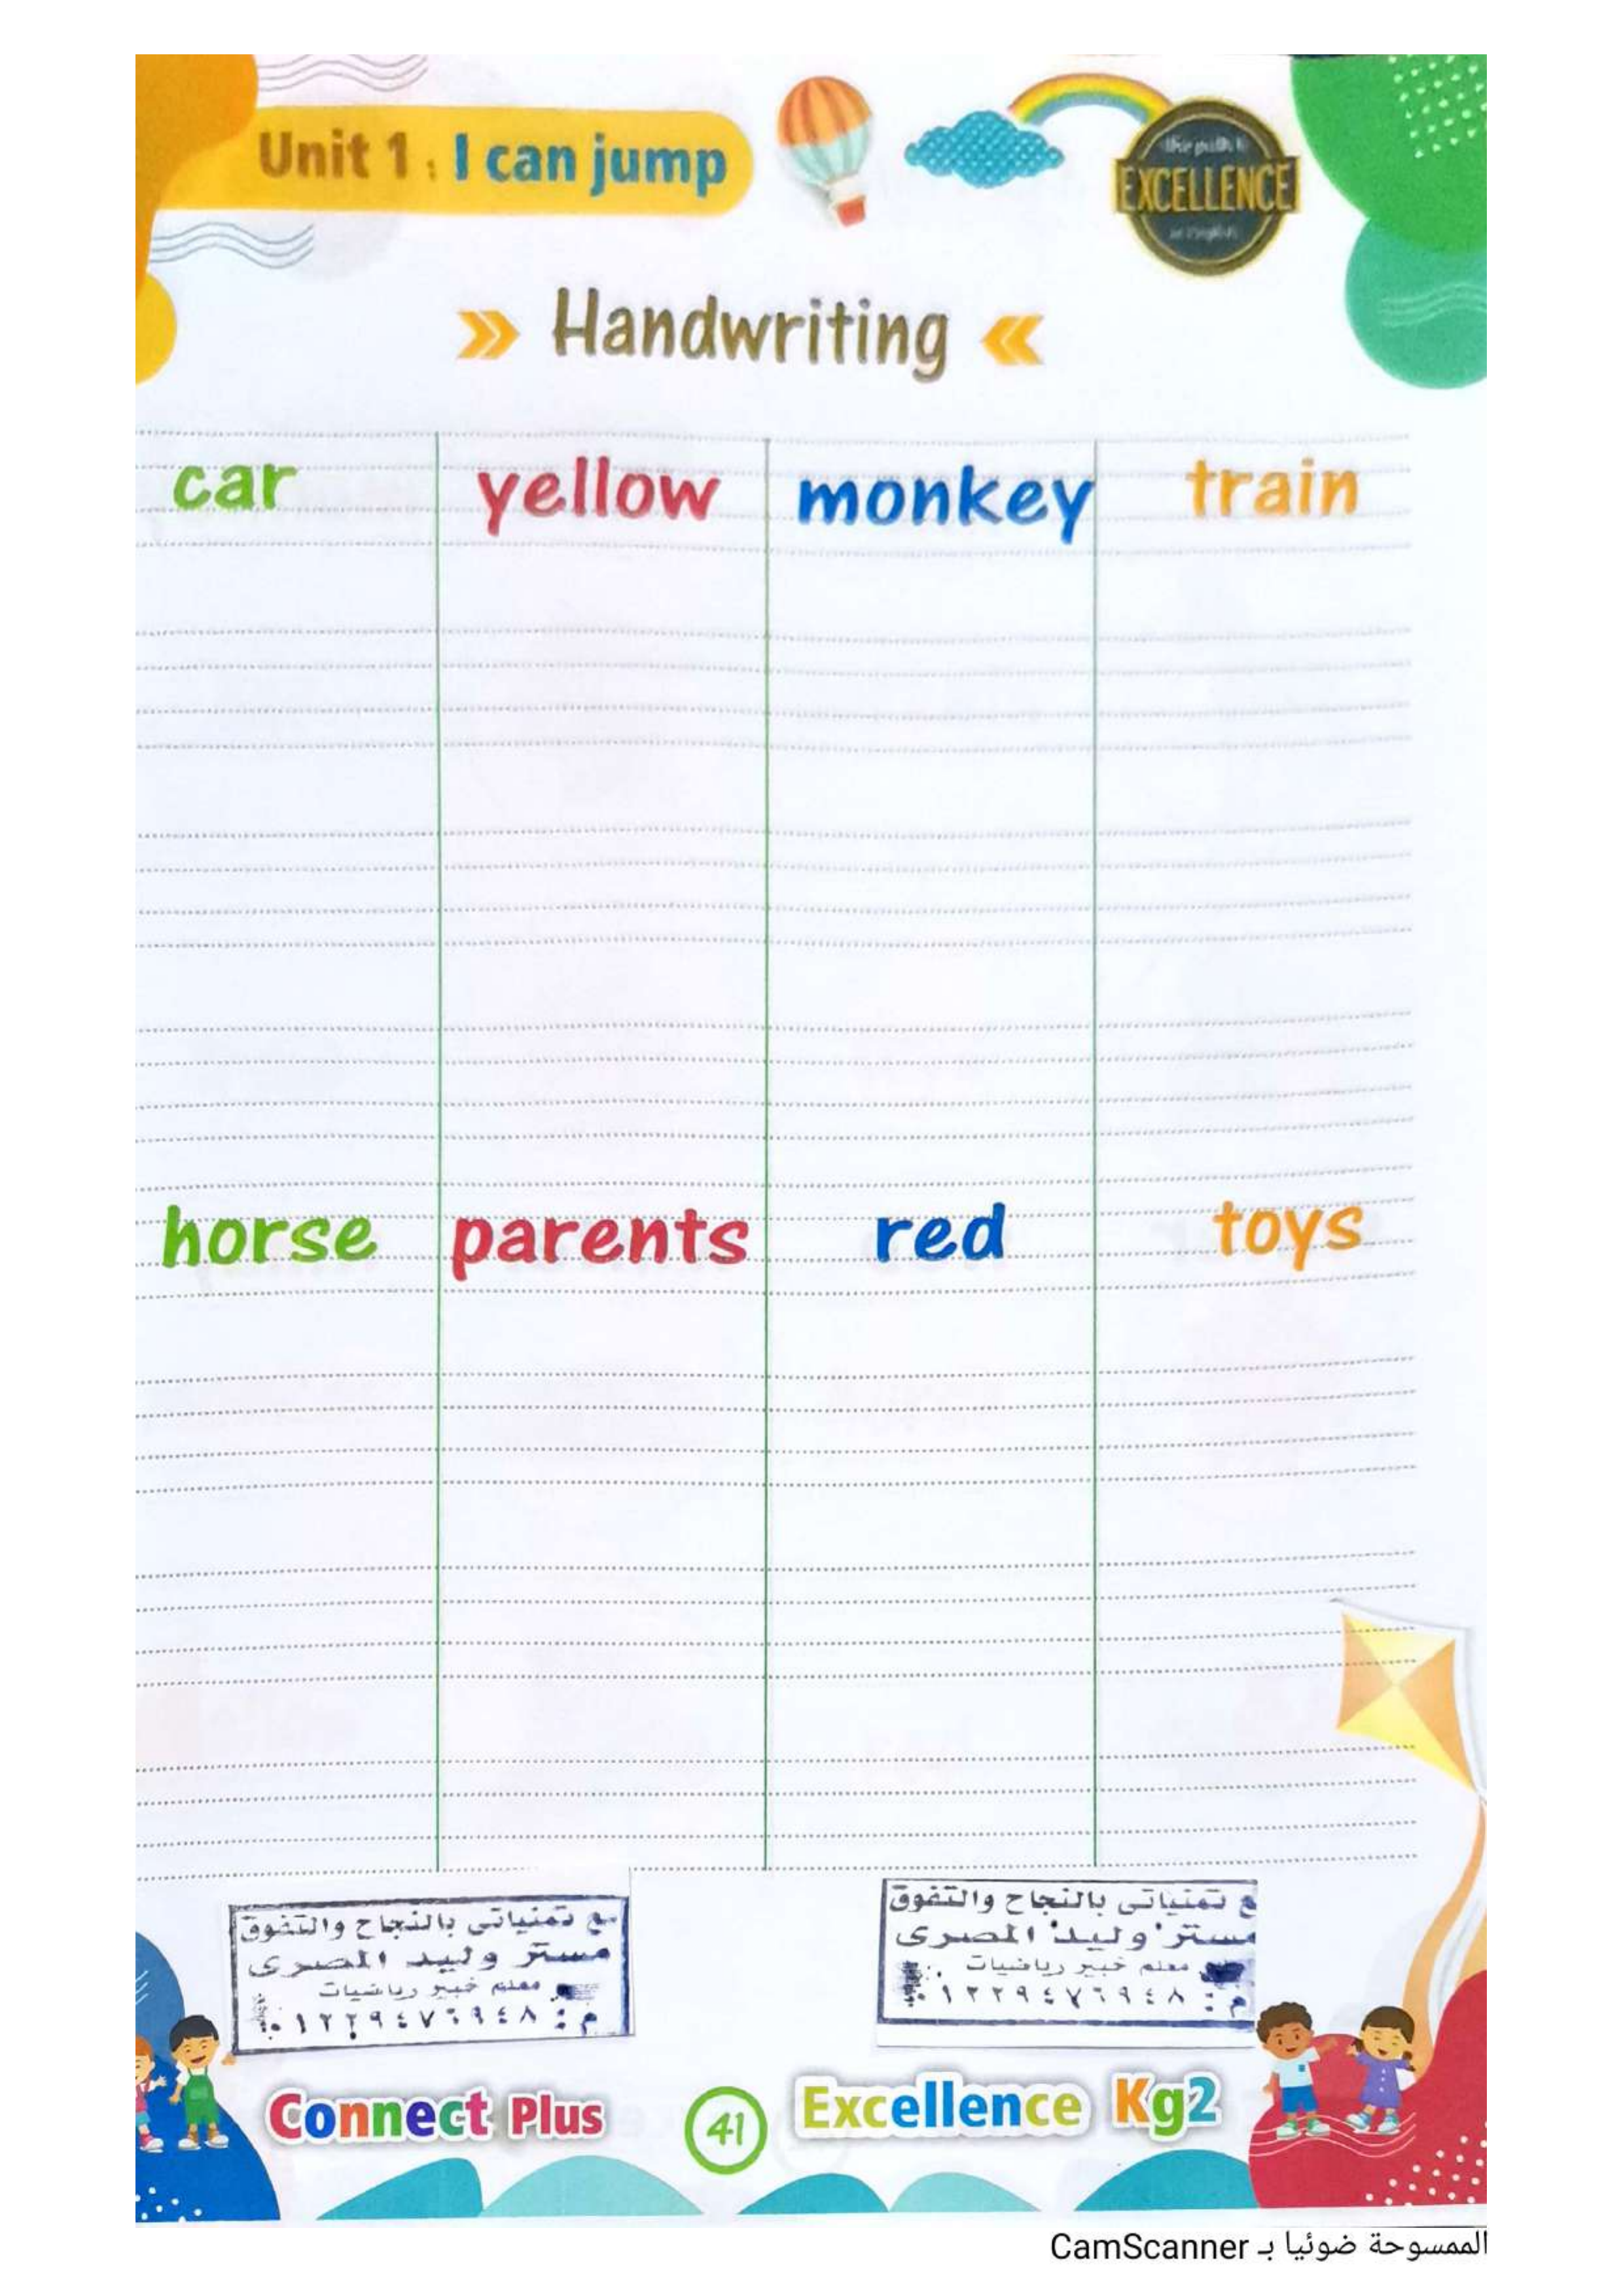 Unit 1 : I can jump
EXCELLENCE
Handwriting
car yellow monkey train
horse parents red toys
مع تمنياتى بالنجاح والتفوق
مستر وليد المصرى
معلم خبير رياضيات
م : ٠١٢٢٩٤٧٦٩٤٨
ع تمنياتى بالنجاح والتفوق
مستر وليد المصرى
معلم خبير رياضيات
م : ٠١٢٢٩٤٧٦٩٤٨
Connect Plus 41 Excellence Kg2
الممسوحة ضوئيا بـ CamScanner